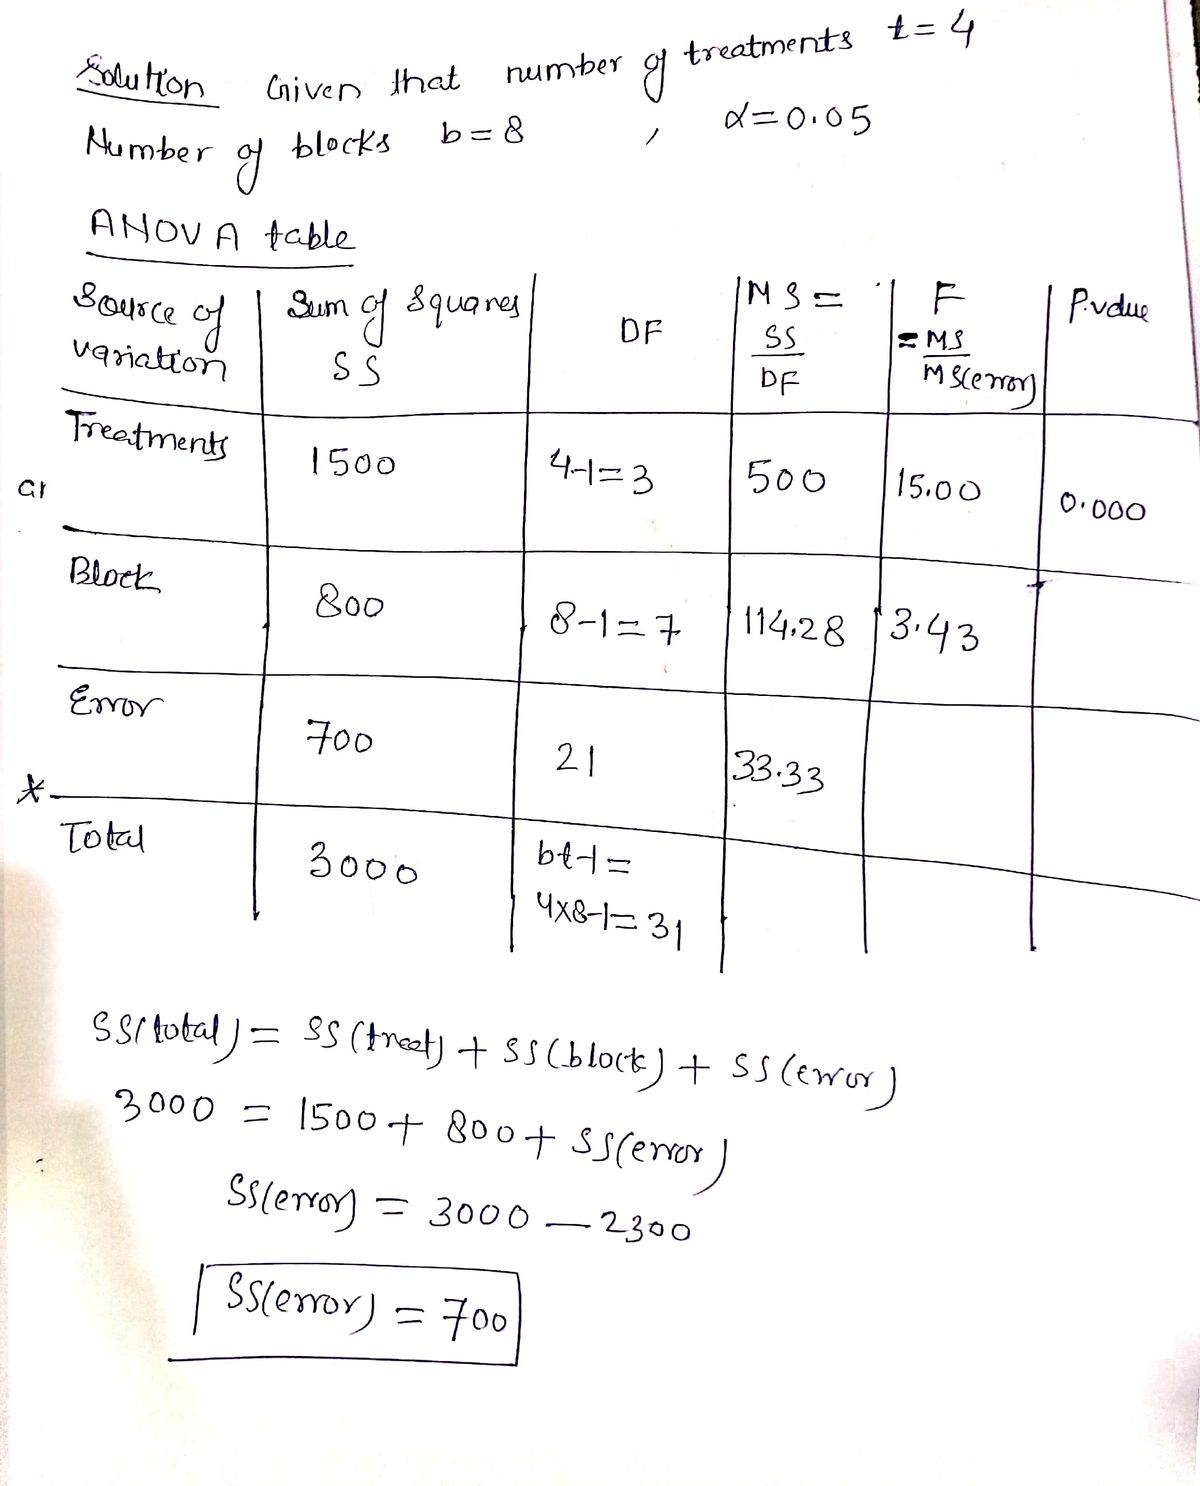 Solution Given that number of treatments t = 4
Number of blocks b = 8 , α = 0.05
ANOVA table
Source of variation | Sum of Squares SS | DF | MS = SS/DF | F = MS/MS(error) | P.value
Treatments | 1500 | 4-1=3 | 500 | 15.00 | 0.000
a1
Block | 800 | 8-1=7 | 114.28 | 3.43
Error | 700 | 21 | 33.33
*
Total | 3000 | bt-1= 4x8-1=31
SS(total) = SS(treat) + SS(block) + SS(error)
3000 = 1500 + 800 + SS(error)
SS(error) = 3000 - 2300
SS(error) = 700